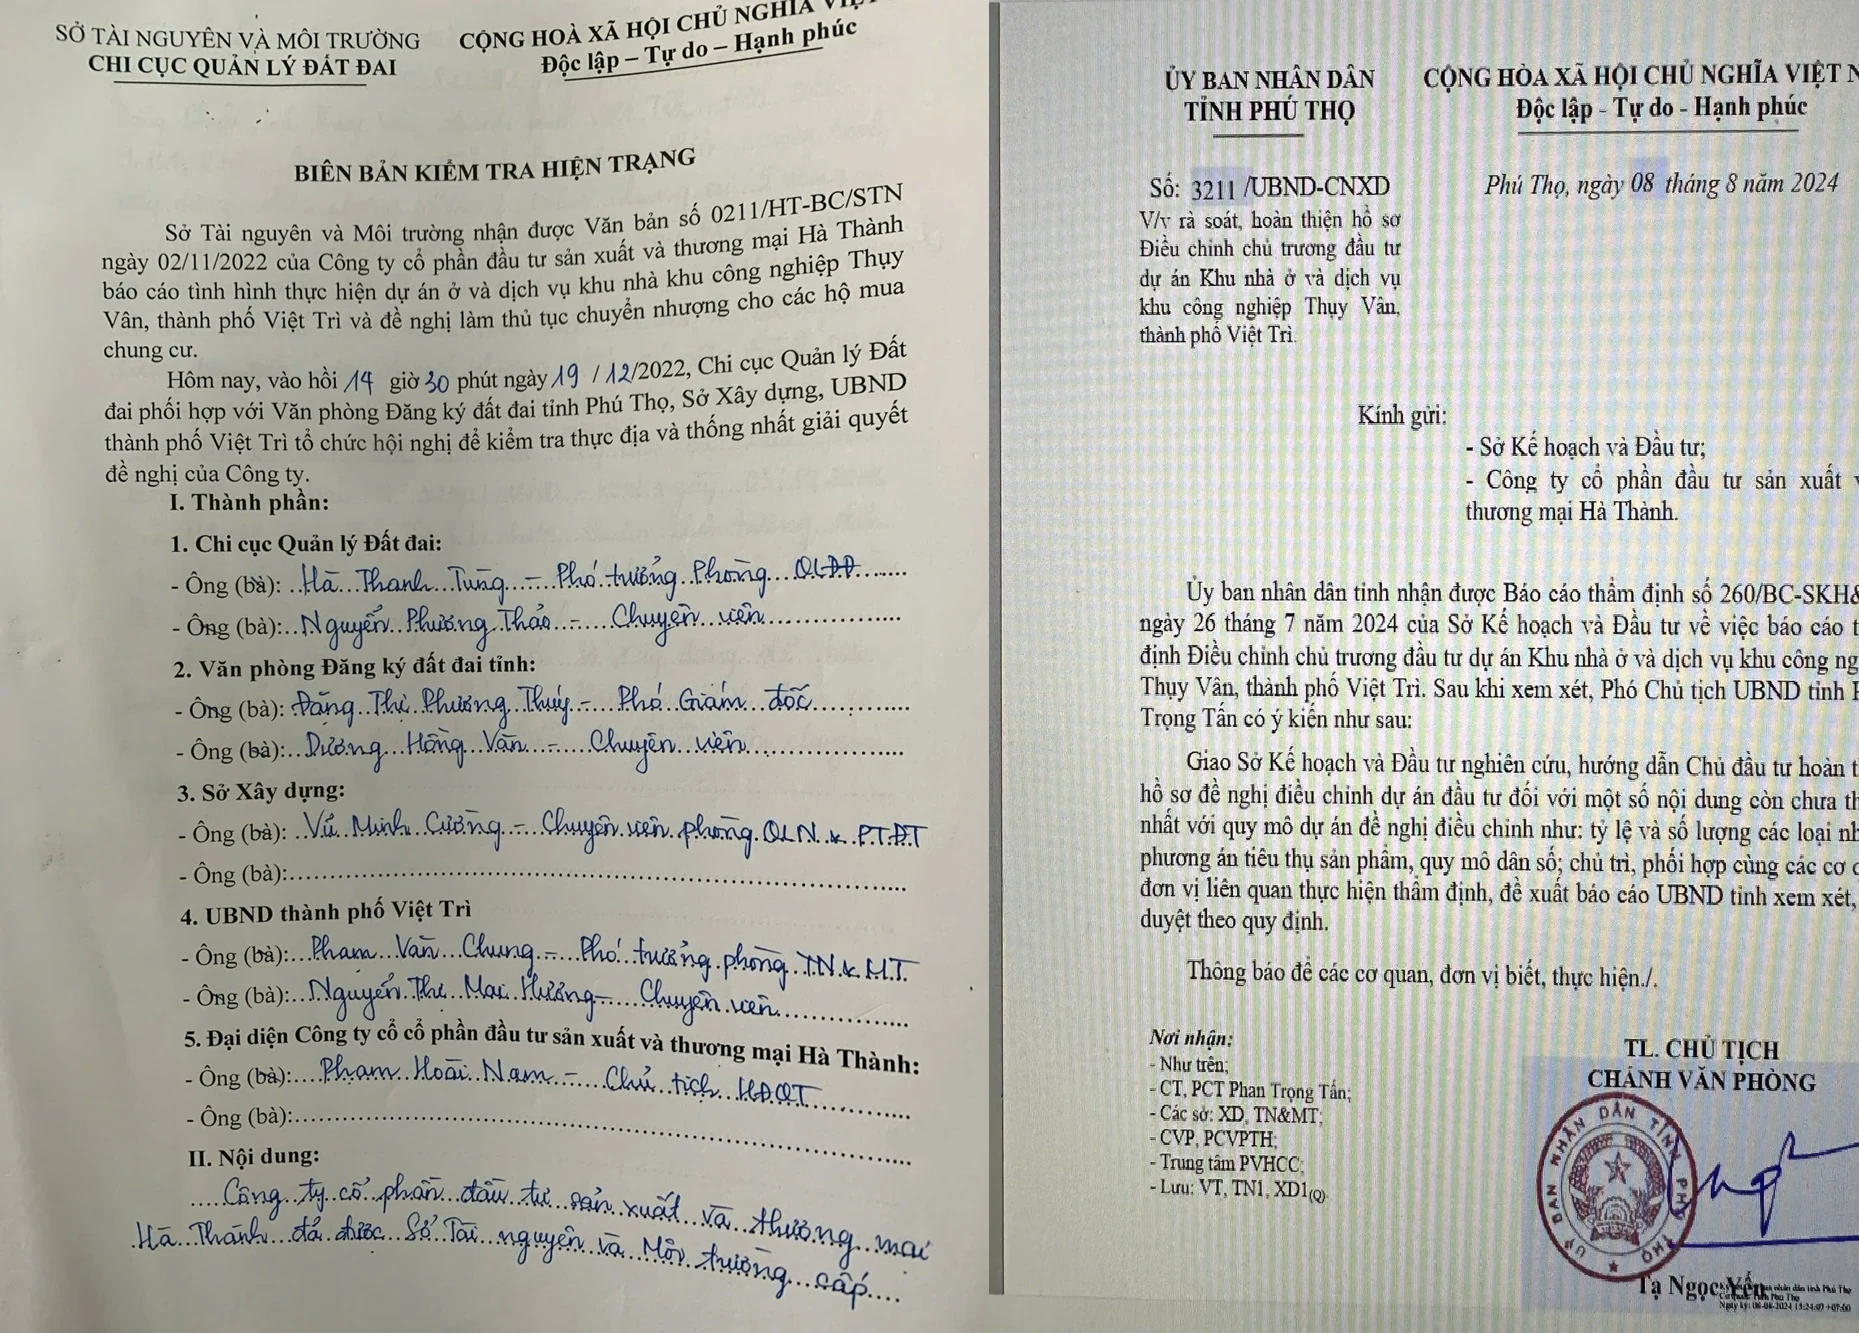 SỞ TÀI NGUYÊN VÀ MÔI TRƯỜNG
CHI CỤC QUẢN LÝ ĐẤT ĐAI
CỘNG HOÀ XÃ HỘI CHỦ NGHĨA
Độc lập – Tự do – Hạnh phúc
BIÊN BẢN KIỂM TRA HIỆN TRẠNG
Sở Tài nguyên và Môi trường nhận được Văn bản số 0211/HT-BC/STN
ngày 02/11/2022 của Công ty cổ phần đầu tư sản xuất và thương mại Hà Thành
báo cáo tình hình thực hiện dự án ở và dịch vụ khu nhà khu công nghiệp Thụy
Vân, thành phố Việt Trì và đề nghị làm thủ tục chuyển nhượng cho các hộ mua
chung cư.
Hôm nay, vào hồi 14 giờ 30 phút ngày 19 / 12/2022, Chi cục Quản lý Đất
đai phối hợp với Văn phòng Đăng ký đất đai tỉnh Phú Thọ, Sở Xây dựng, UBND
thành phố Việt Trì tổ chức hội nghị để kiểm tra thực địa và thống nhất giải quyết
đề nghị của Công ty.
I. Thành phần:
1. Chi cục Quản lý Đất đai:
- Ông (bà): Hà Thanh Tùng - Phó trưởng Phòng QLĐĐ
- Ông (bà): Nguyễn Phương Thảo - Chuyên viên
2. Văn phòng Đăng ký đất đai tỉnh:
- Ông (bà): Đặng Thị Phương Thúy - Phó Giám đốc
- Ông (bà): Dương Hồng Vân - Chuyên viên
3. Sở Xây dựng:
- Ông (bà): Vũ Minh Cường - Chuyên viên phòng QLN & PTĐT
- Ông (bà):
4. UBND thành phố Việt Trì
- Ông (bà): Phạm Văn Chung - Phó trưởng phòng TN & MT.
- Ông (bà): Nguyễn Thị Mai Hương - Chuyên viên
5. Đại diện Công ty cổ cổ phần đầu tư sản xuất và thương mại Hà Thành:
- Ông (bà): Phạm Hoài Nam - Chủ tịch HĐQT
- Ông (bà):
II. Nội dung:
Công ty cổ phần đầu tư sản xuất và thương mại
Hà Thành đã được Sở Tài nguyên và Môi trường cấp
ỦY BAN NHÂN DÂN
TỈNH PHÚ THỌ
CỘNG HÒA XÃ HỘI CHỦ NGHĨA VIỆT N
Độc lập - Tự do - Hạnh phúc
Số: 3211 /UBND-CNXD
Phú Thọ, ngày 08 tháng 8 năm 2024
V/v rà soát, hoàn thiện hồ sơ
Điều chỉnh chủ trương đầu tư
dự án Khu nhà ở và dịch vụ
khu công nghiệp Thụy Vân,
thành phố Việt Trì.
Kính gửi:
- Sở Kế hoạch và Đầu tư;
- Công ty cổ phần đầu tư sản xuất
thương mại Hà Thành.
Ủy ban nhân dân tỉnh nhận được Báo cáo thẩm định số 260/BC-SKH&
ngày 26 tháng 7 năm 2024 của Sở Kế hoạch và Đầu tư về việc báo cáo t
định Điều chỉnh chủ trương đầu tư dự án Khu nhà ở và dịch vụ khu công ng
Thụy Vân, thành phố Việt Trì. Sau khi xem xét, Phó Chủ tịch UBND tỉnh
Trọng Tấn có ý kiến như sau:
Giao Sở Kế hoạch và Đầu tư nghiên cứu, hướng dẫn Chủ đầu tư hoàn t
hồ sơ đề nghị điều chỉnh dự án đầu tư đối với một số nội dung còn chưa th
nhất với quy mô dự án đề nghị điều chỉnh như: tỷ lệ và số lượng các loại nh
phương án tiêu thụ sản phẩm, quy mô dân số; chủ trì, phối hợp cùng các cơ
đơn vị liên quan thực hiện thẩm định, đề xuất báo cáo UBND tỉnh xem xét,
duyệt theo quy định.
Thông báo để các cơ quan, đơn vị biết, thực hiện./.
Nơi nhận:
- Như trên;
- CT, PCT Phan Trọng Tấn;
- Các sở: XD, TN&MT;
- CVP, PCVPTH;
- Trung tâm PVHCC;
- Lưu: VT, TN1, XD1(Q)
TL. CHỦ TỊCH
CHÁNH VĂN PHÒNG
ỦY BAN NHÂN DÂN TỈNH PHÚ THỌ
Tạ Ngọc Yến